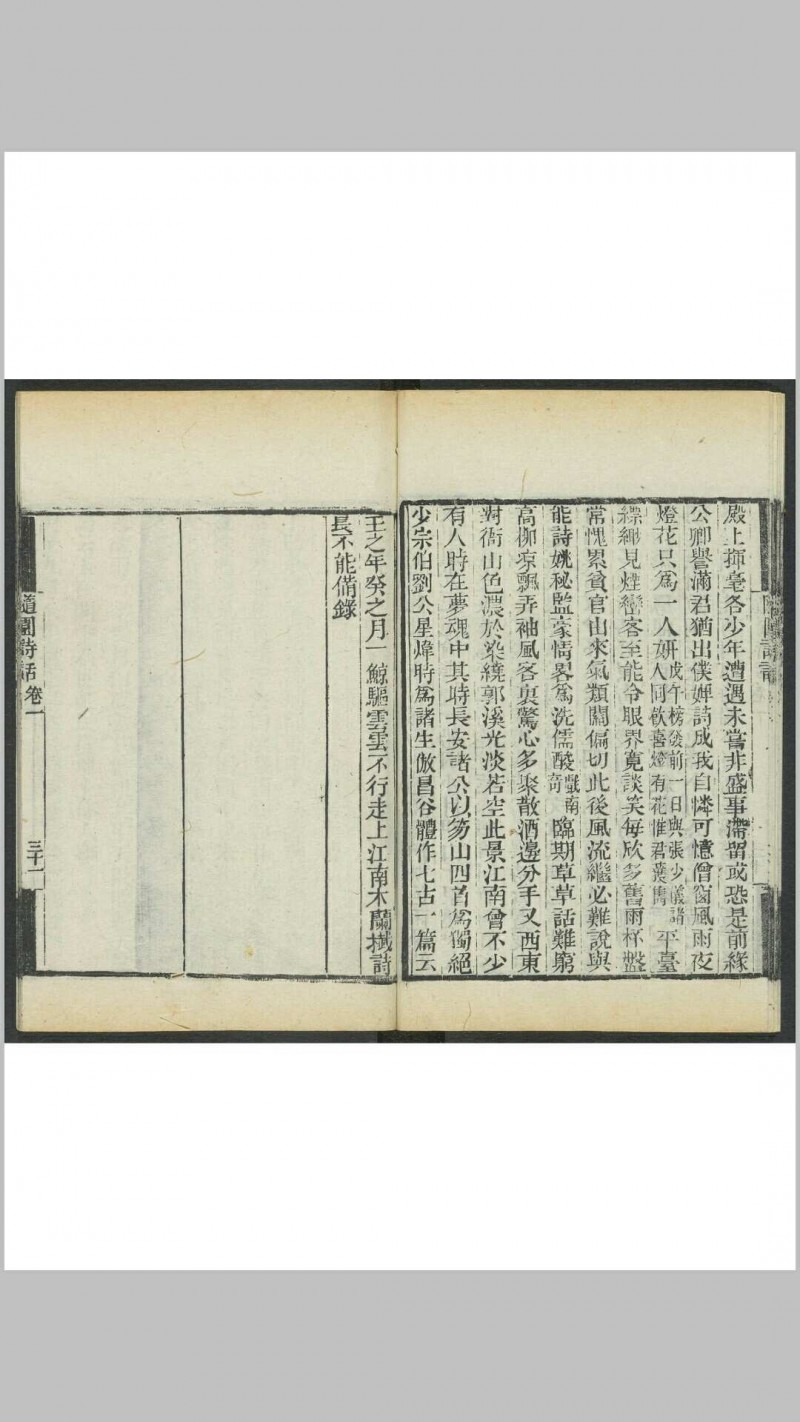 隨園詩話
殿上揮毫各少年遭遇未嘗非盛事滯留或恐是前緣
公卿譽滿君猶出僕婢詩成我自憐可憶僧窗風雨夜
燈花只爲一人妍戊午榜發前一日與張少儀諸人同飲喜燈有花惟君獲雋 平臺
縹緲見煙巒客至能令眼界寬談笑每欣多舊雨杯盤
常愧累貧官山來氣類關偏切此後風流繼必難說與
能詩姚秘監豪情畧爲洗儒酸 臨期草草話難窮
高柳凉飄弄袖風客裏驚心多聚散酒邊分手又西東
對衙山色濃於染繞郭溪光淡若空此景江南曾不少
有人時在夢魂中其時長安諸公以笏山四首爲獨絕
少宗伯劉公星煒時爲諸生倣昌谷體作七古一篇云
壬之年癸之月一鯨驅雲雲不行走上江南木蘭棫詩
長不能備錄
隨園詩話 卷一
三十一